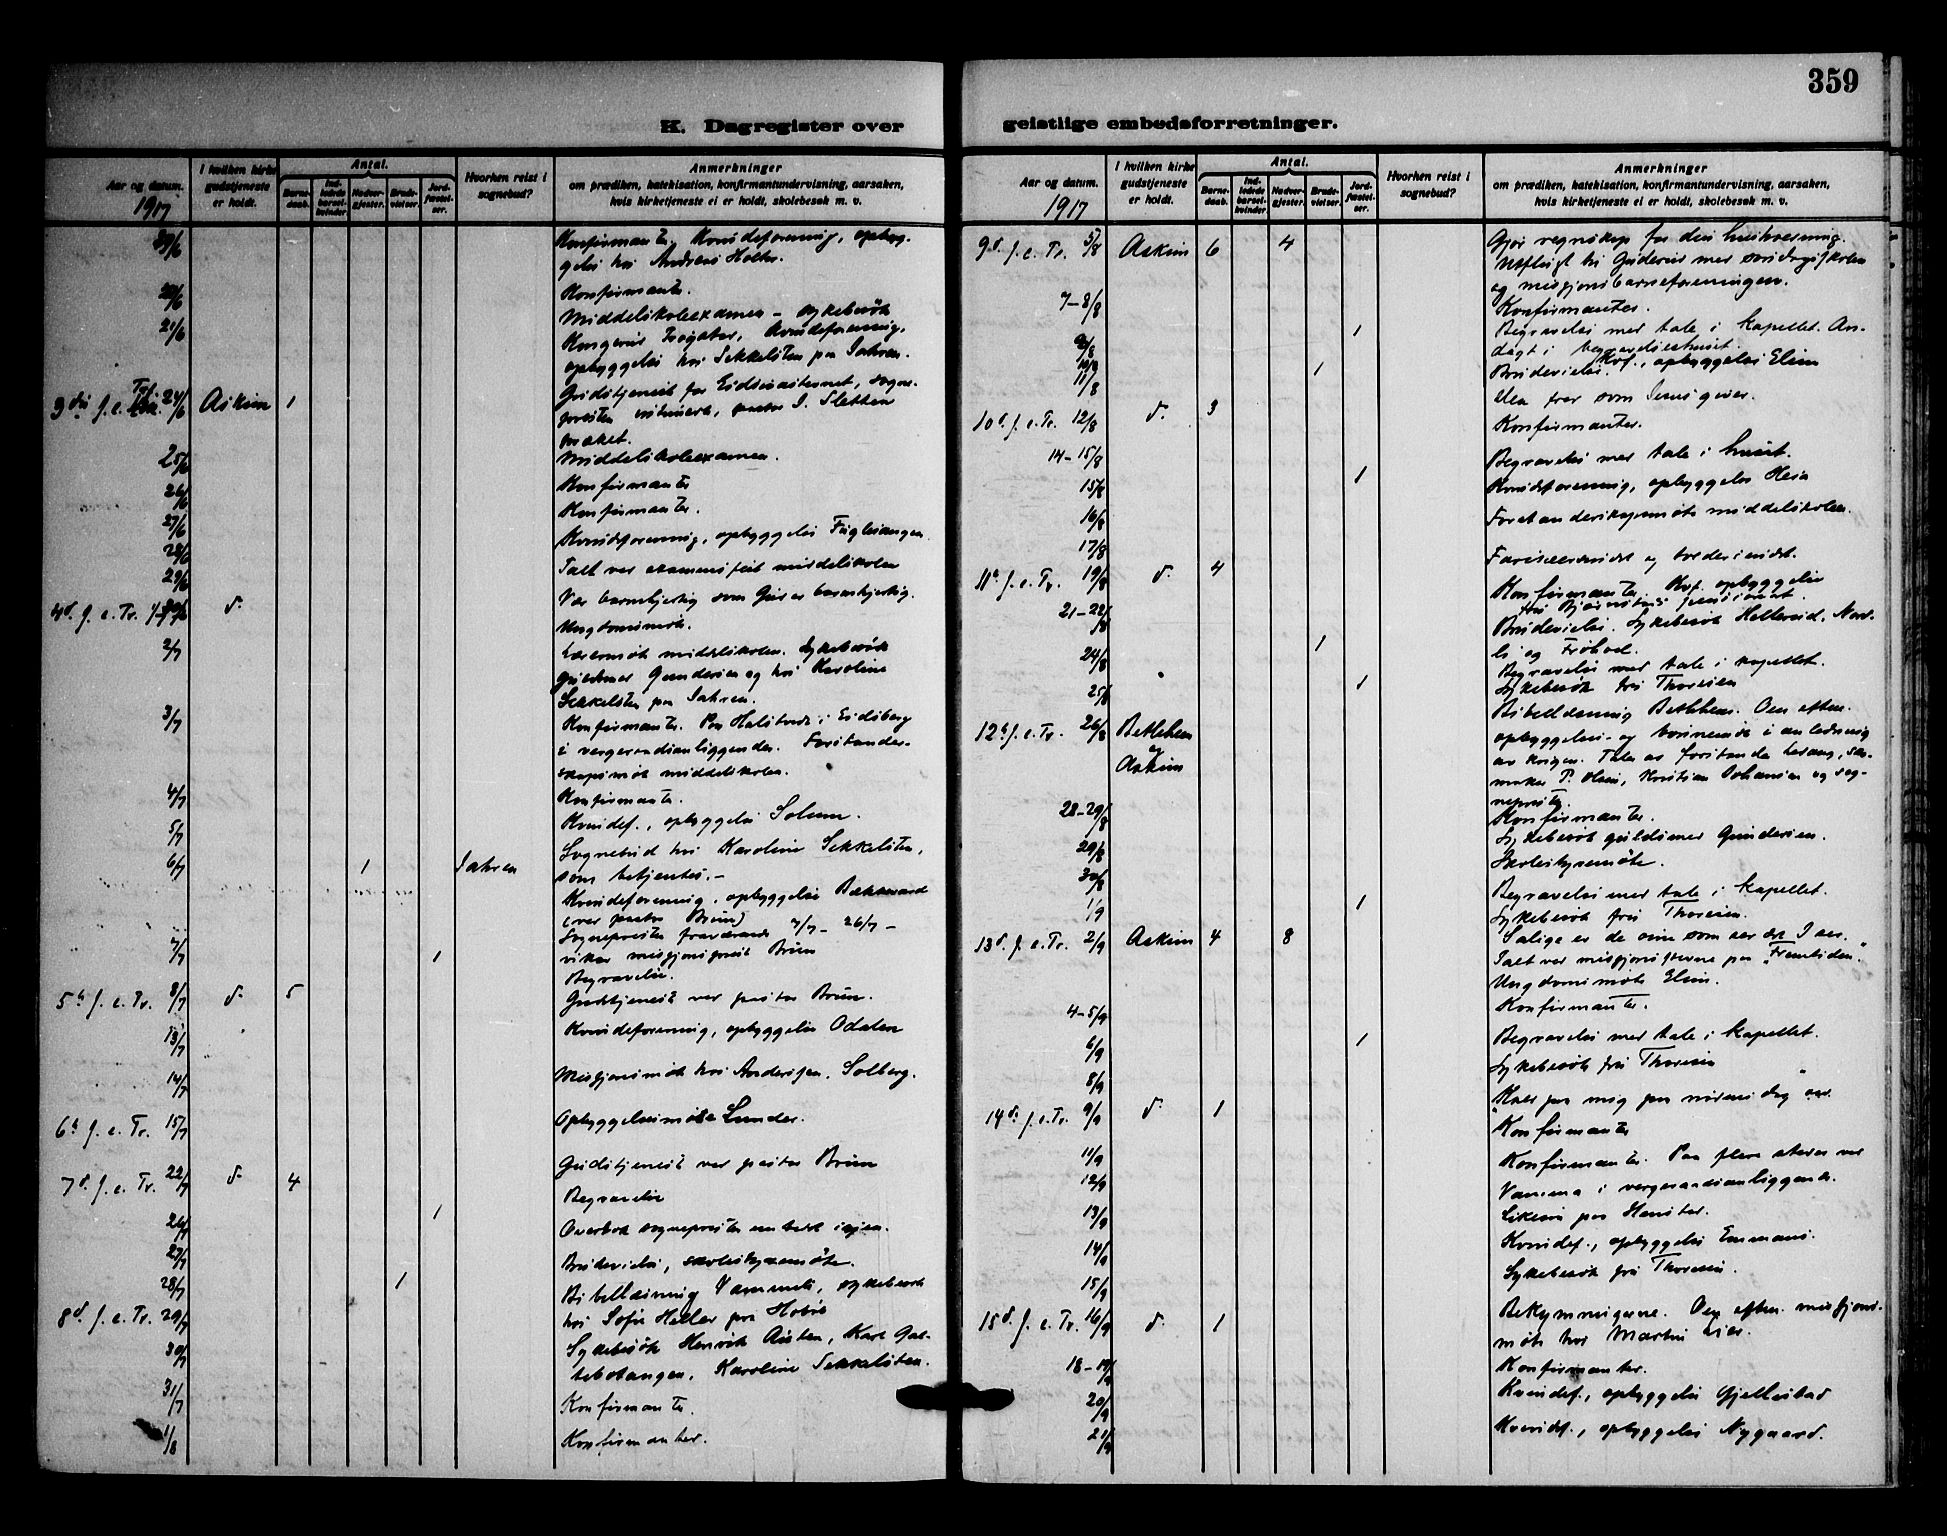 359
K. Dagregister over
geistlige embedsforretninger.
Aar og datum.
1917
I hvilken kirke
gudstjeneste
er holdt.
Antal.
Barne-
daab.
Ind-
ledede
barsel-
kvinder.
Nadver-
gjester.
Brude-
vielser.
Jord-
fæstel-
ser.
Hvorhen reist i
sognebud?
Anmerkninger
om prædiken, katekisation, konfirmantundervisning, aarsaken,
hvis kirketjeneste ei er holdt, skolebesøk m. v.
Konfirmanter. Kvindeforening, opbyg-
gelse hos Andreas Holter.
20/6 Konfirmanter.
Middelskoleexamen – sykebesøk
21/6 Kvindeforening,
opbyggelse hos Sekkelsten paa Jahren.
f. e. Tr. 24/6 Askim 1 Gudstjeneste for sogne-
presten pastor J. Sletten
præket.
25/6 Middelskoleexamen.
26/6 Konfirmanter
27/6 Konfirmanter.
28/6 Kvindeforening, opbyggelse Fuglesangen
29/6 Talt ved examensfest middelskolen
4d. f. e. Tr. d. Vær barmhjertig som Gud er barmhjertig.
Ungdomsmøte.
2/7 Lærermøte middelskolen. Sykebesøk
Gundersen og hos Karoline
Sekkelsten paa Jahren.
3/7 Konfirmanter. Paa Halstvedt i Eidsberg
i vergeraadsanliggender. Forstander-
skapsmøte middelskolen.
4/7 Konfirmanter.
5/7 Kvindef., opbyggelse Solum.
6/7 1 Jahren Sognebud hos Karoline Sekkelsten,
som betjentes.–
Kvindeforening, opbyggelse
(ved pastor Bruun)
Sognepresten fraværende 7/7 – 26/7 –
vikar misjonsprest Bruun
7/7 1 Begravelse.
5te f. e. Tr. 8/7 d. 5 Gudstjeneste ved pastor Bruun.
13/7 Kvindeforening, opbyggelse Odalen
14/7 Misjonsmøte hos Andersen, Solberg.
6te f. e. Tr. 15/7 Opbyggelsesmøte Lunder.
7d. f. e. Tr. 22/7 d. 4 Gudstjeneste ved pastor Bruun
1 Begravelse
26/7 Overtok sognepresten embedet igjen.
27/7 Brudevielse, skolestyremøte.
28/7 1 Bibellæsning Vammeli, sykebesøk
8d. f. e. Tr. 29/7 hos Sofie Heller paa
30/7 Sykebesøk Henrik Austen, Karl
Karoline Sekkelsten.
31/7 Konfirmanter.
1/8 Konfirmanter.
Aar og datum.
1917
I hvilken kirke
gudstjeneste
er holdt.
Antal.
Barne-
daab.
Ind-
ledede
barsel-
kvinder.
Nadver-
gjester.
Brude-
vielser.
Jord-
fæstel-
ser.
Hvorhen reist i
sognebud?
Anmerkninger
om prædiken, katekisation, konfirmantundervisning, aarsaken,
hvis kirketjeneste ei er holdt, skolebesøk m. v.
9d. f. e. Tr. 5/8 Askim 6 4 Gjør regnskap for din husholdning.
Utflugt til med søndagsskolen
og misjonsbarneforeningen.
7–8/8 Konfirmanter.
9/8 1 Begravelse med tale i kapellet. An-
dagt i
10/8 1 Brudevielse. Kvf., opbyggelse Elim
11/8
10d. f. e. Tr. 12/8 d. 3 Men som Jesus giver.
14–15/8 Konfirmanter.
15/8 1 Begravelse med tale i huset.
16/8 Kvindeforening, opbyggelse Heia
17/8 Forstanderskapsmøte middelskolen.
11te f. e. Tr. 19/8 d. 4 Farisæersindet og toldersindet.
21–22/8 Konfirmanter. Kvf. opbyggelse
pensionat.
24/8 1 Brudevielse. Sykebesøk
og
25/8 1 Begravelse med tale i kapellet.
Sykebesøk fru Thoresen
12te f. e. Tr. 26/8 Betlehem
og
Askim
Bibellæsning Bethlehem. Om efterm.
opbyggelses- og bønnemøte i anledning
av krigen. Taler av
P. Olsen, Kristian Johansen og sog-
nepresten.
28–29/8 Konfirmanter.
29/8 Sykebesøk Gundersen.
30/8 Skolestyremøte.
1/9 1 Begravelse med tale i kapellet.
Sykebesøk fru Thoresen.
13d. f. e. Tr. 2/9 Askim 4 8 Salige er de øine som ser det I ser.
Talt ved misjonsstevne paa „Fremtiden."
Ungdomsmøte Elim.
4–5/9 Konfirmanter.
6/9 1 Begravelse med tale i kapellet.
8/9 Sykebesøk fru Thoresen
14d. f. e. Tr. 9/9 d. 1 „Kald paa mig paa nødens dag" osv.
11/9 Konfirmanter
12/9 Konfirmanter. Paa flere steder ved
Vamma i vergeraadsanliggender.
13/9 Likesaa paa
14/9 Kvindef., opbyggelse Emmaus.
15/9 Sykebesøk fru Thoresen.
15d. f. e. Tr. 16/9 d. 1 Bekymringerne. Om efterm. misjons-
møte hos Martin Lier.
18–19/9 Konfirmanter.
20/9 Kvindef., opbyggelse Gjellestad
21/9 Kvindef., opbyggelse Nygaard.